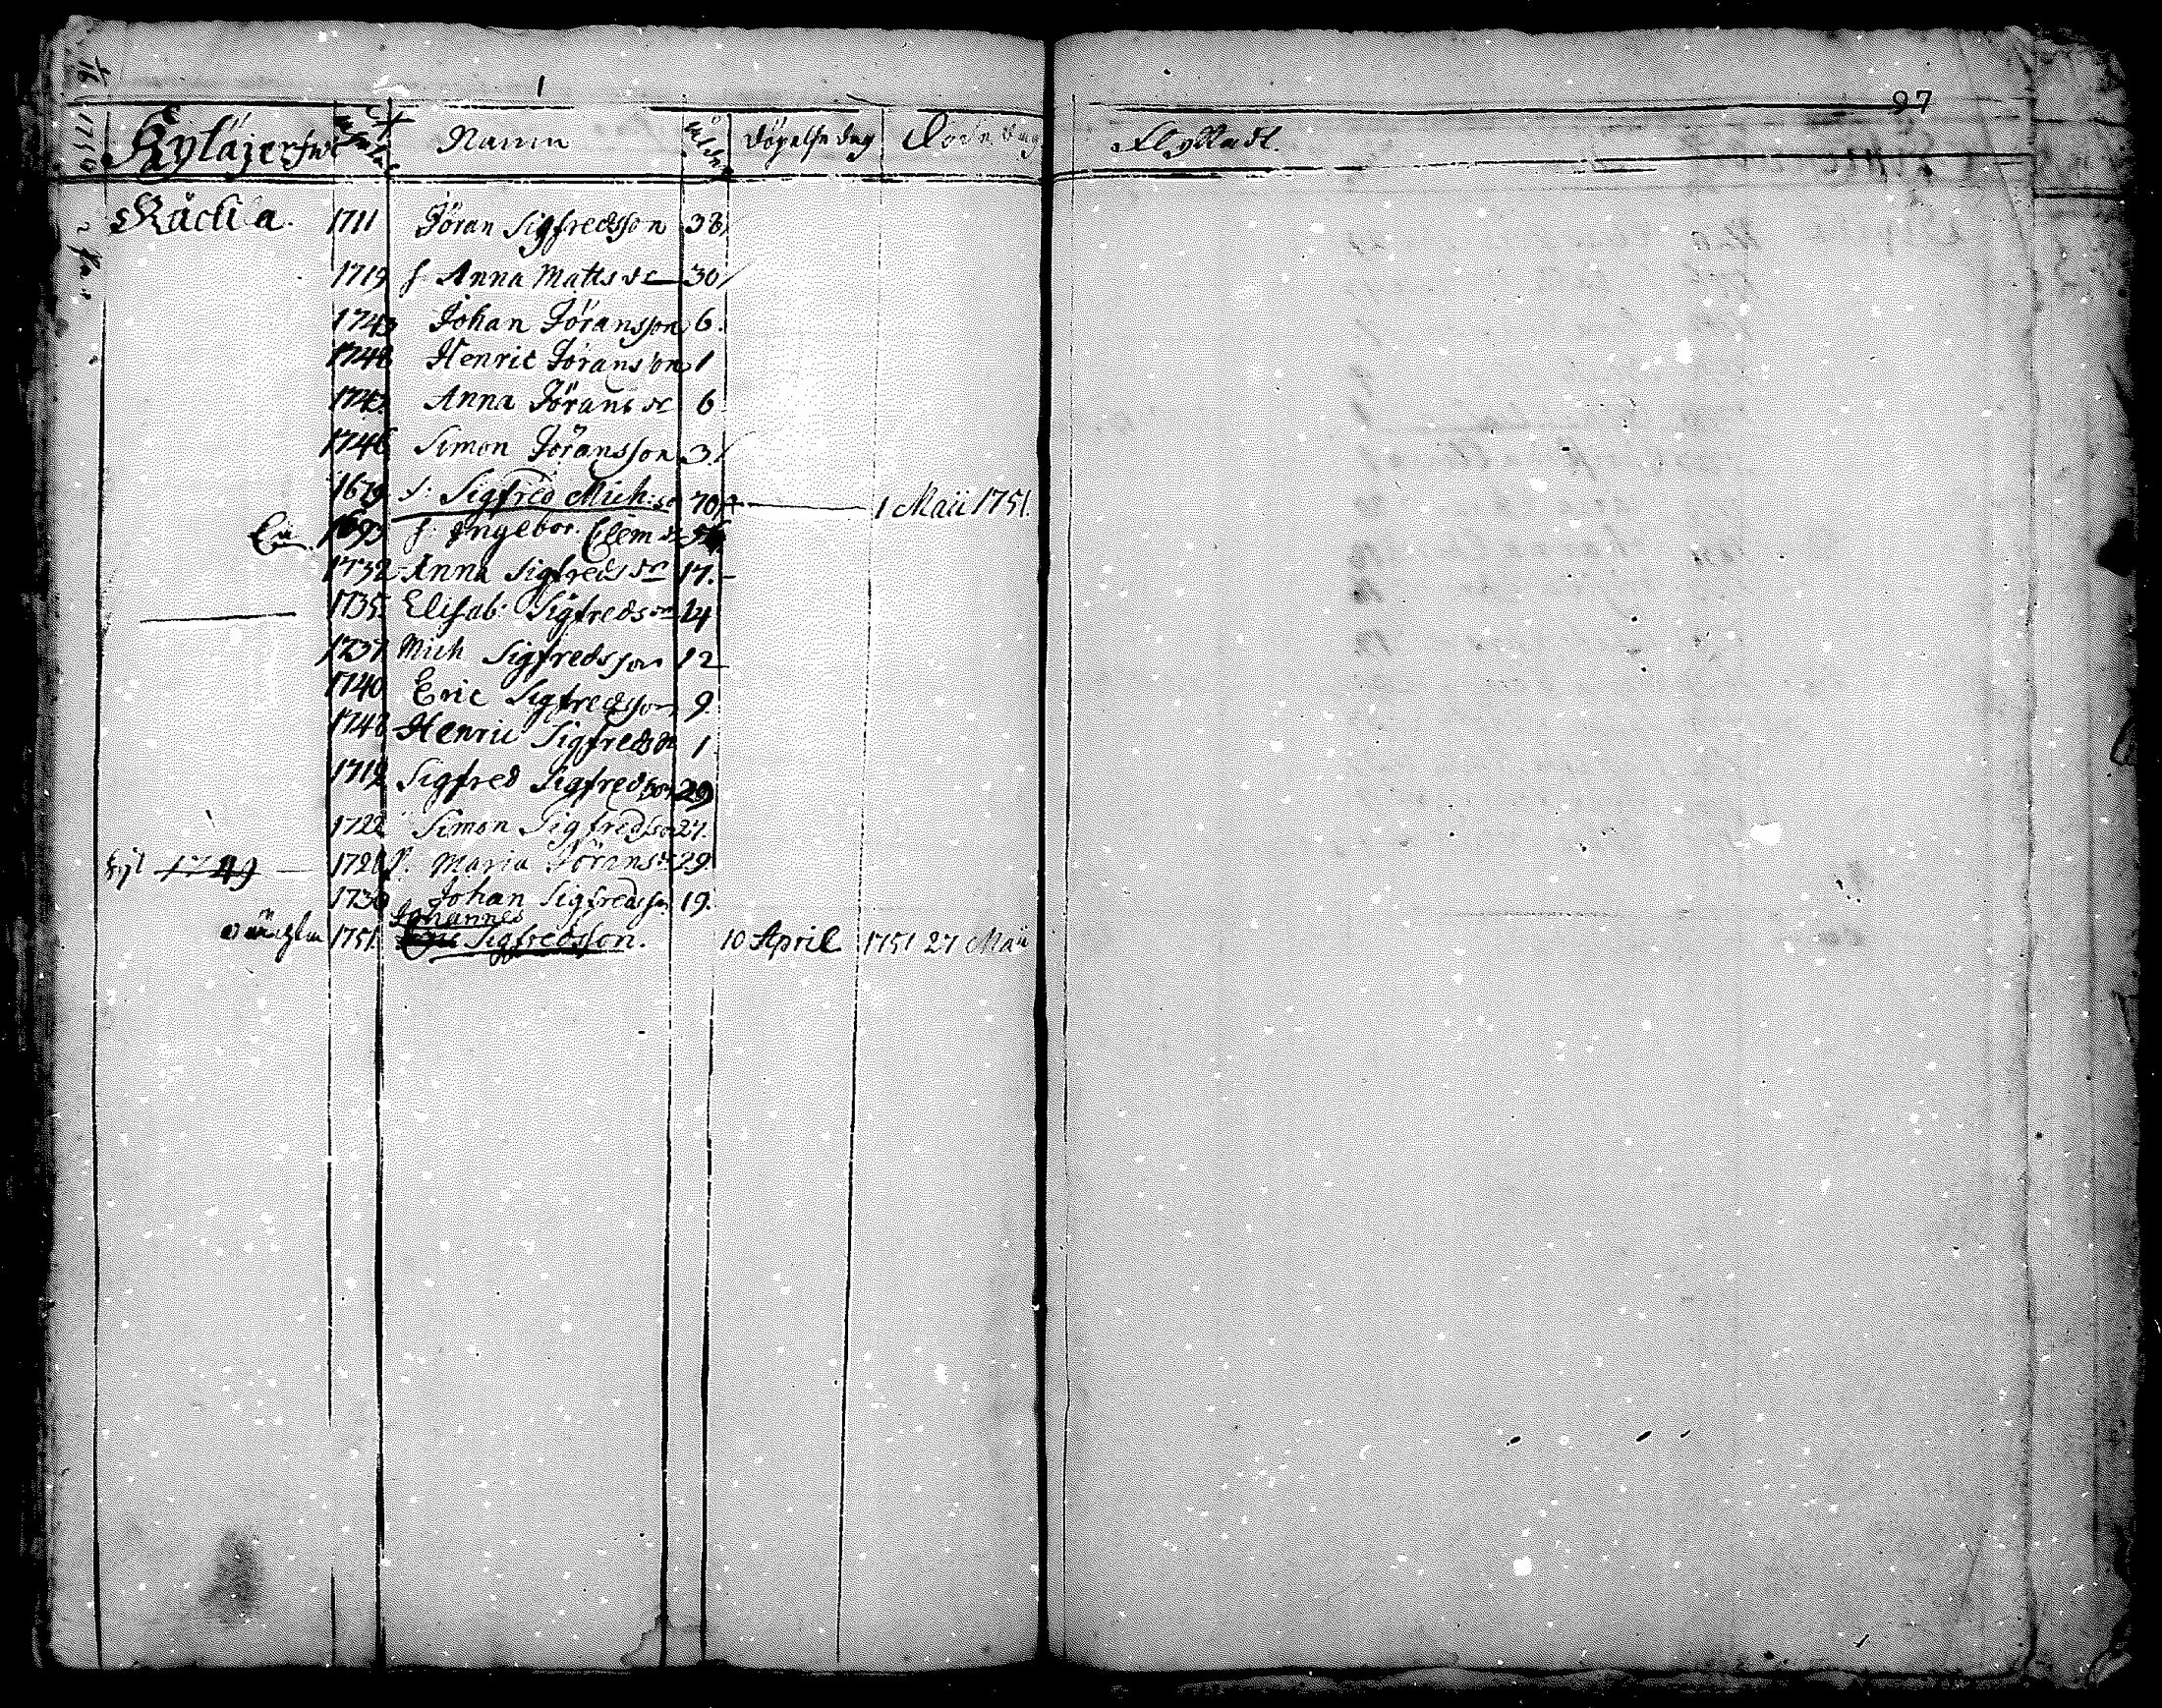 1
97
Kyläjerfwi Namn Ålder Döpelse dag Döde dag Flyttadt.
Räckila. 1711 Jöran Sigfredsson 38
1719 h Anna Matts dr 30
1743 Johan Jöransson 6.
1748 Henric Jöransson 1
1743 Anna Jörans dr 6
1746 Simon Jöransson 3
1679 Sigfred Mich: so 70 1 Maii 1751.
1693 h: Ingebor. Clem dr 56
1732 Anna Sigfreds dr 17.
1735 Elisab: Sigfreds dr 14
1737 Mich Sigfredsson 12
1740 Eric Sigfredsson 9
1748 Henric Sigfredsso 1
1719 Sigfred Sigfredsson 29
1722 Simon Sigfredsso 27.
1749 1720 Maria Jörans dr 29.
1730 Johan Sigfredsson 19.
Johannes
1751. Sigfredsson. 10 April 1751 27 Maii